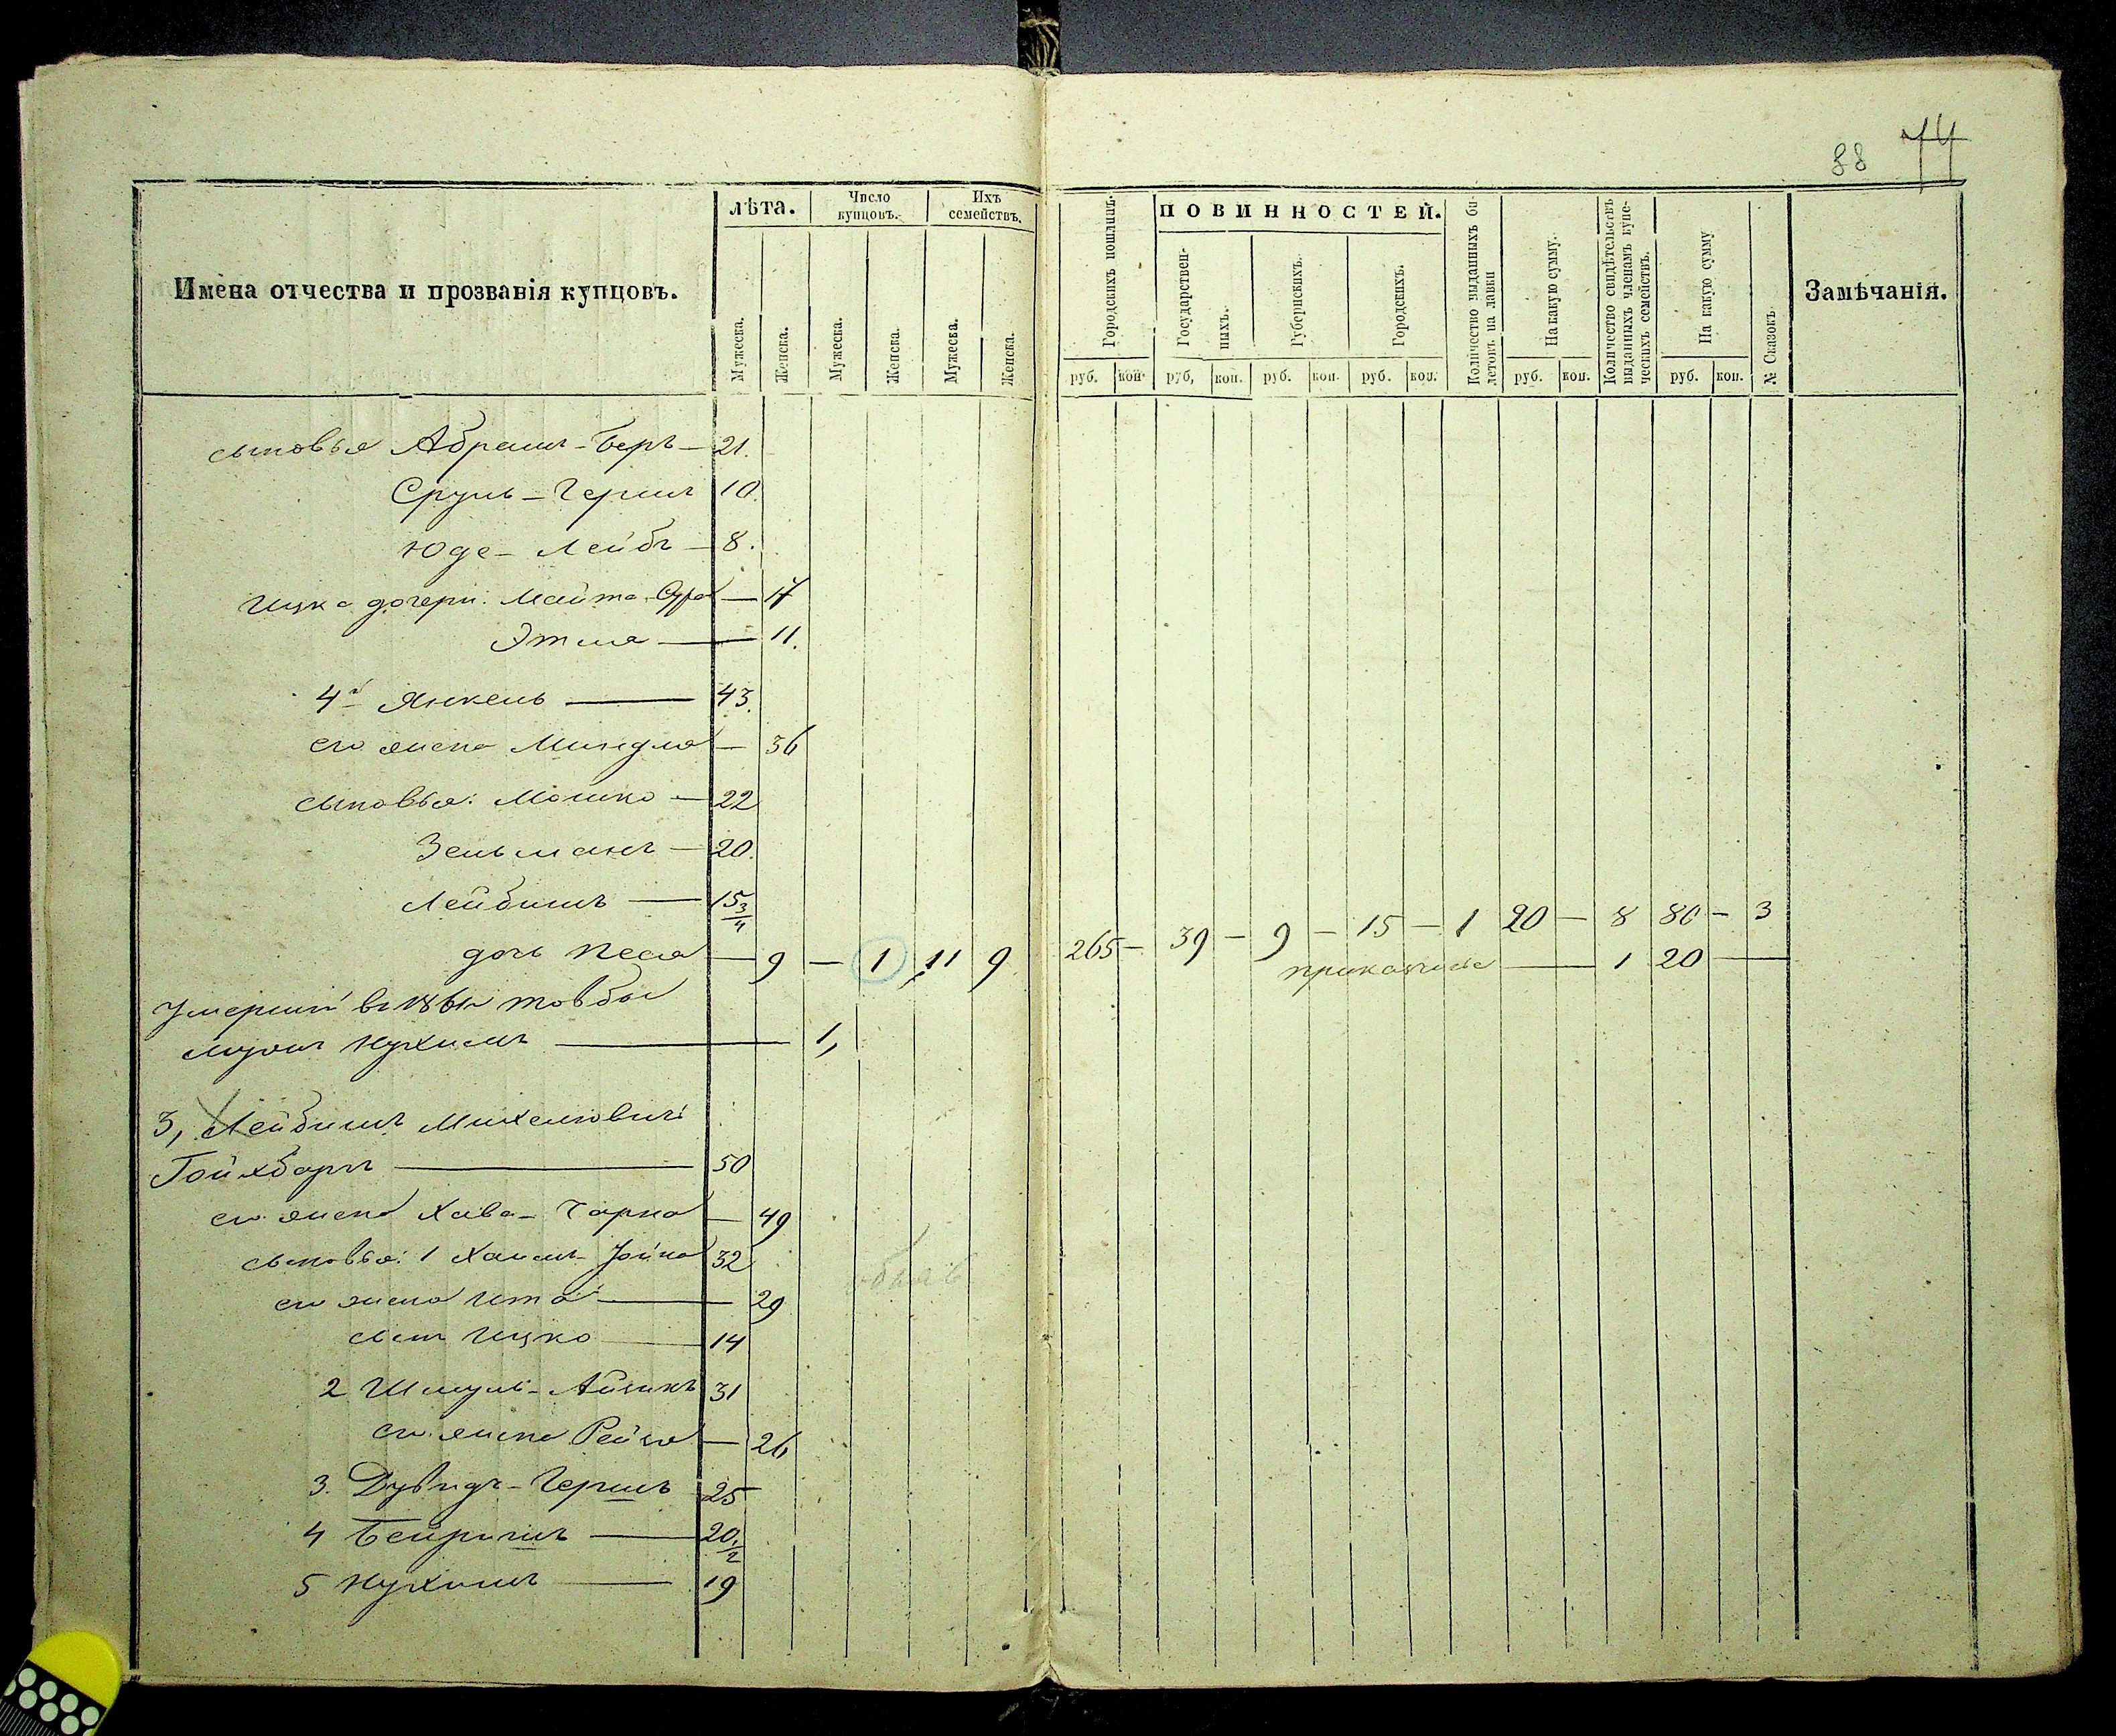 88 74
Имена отчества и прозванія купцовъ.
лѣта.
Число купцовъ.
Ихъ семействъ.
Мужеска.
Женска.
Мужеска.
Женска.
Мужеска.
Женска.
Городскихъ пошлинъ.
ПОВИННОСТЕЙ.
Государственныхъ.
Губернскихъ.
Городскихъ.
Количество выданныхъ билетовъ на лавки
На какую сумму.
Количество свидѣтельствъ выданныхъ членамъ купеческихъ семействъ.
На какую сумму
№ Сказокъ.
Замѣчанія.
руб. коп. руб, коп. руб. коп. руб. коп. руб. коп. руб. коп.
сыновья Абрамъ-Беръ — 21.
Сруль-Гершъ 10.
Юде-Лейбъ — 8.
Ицка дочери: Майта-Сура — 17
Этля — 11.
4й Янкель — 43.
его жена Миндля — 36
сыновья: Мошко — 22
Зельманъ — 20.
Лейбишъ — 15 3/4
дочь Песя — 9 — 1 11 9 265 — 39 — 9 — 15 — 1 20 — 8 80 — 3
прикащика — 1 20 —
Умершій въ 1861 г.
мужъ Нухимъ — 1,
3, Лейбишъ Михелювичъ
Гойхбаргъ — 50
его жена Хава-Чарна — 49
сыновья: 1 Хаимъ-Іойна 32
его жена Ита — 29
сынъ Ицко — 14
2 Шмуль-Айзикъ 31
его жена Рейзя — 26
3. Дувидъ-Гершъ 25
4 Бейришъ — 20 1/2
5 Нухимъ — 19